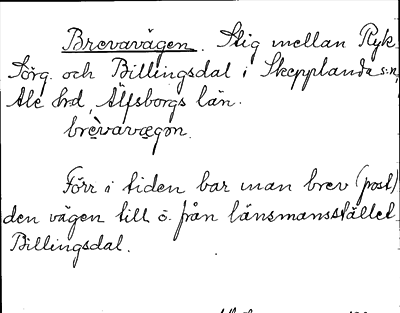 Brevavägen. Stig mellan Ryk-
Sörg. och Billingsdal i Skepplanda s:n,
Ale hrd, Älfsborgs län.
brèvavægən.
Förr i tiden bar man brev (post)
den vägen till o. från länsmansstället
Billingsdal.